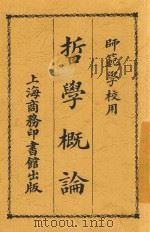 師範學校用
哲學概論
上海商務印書館出版